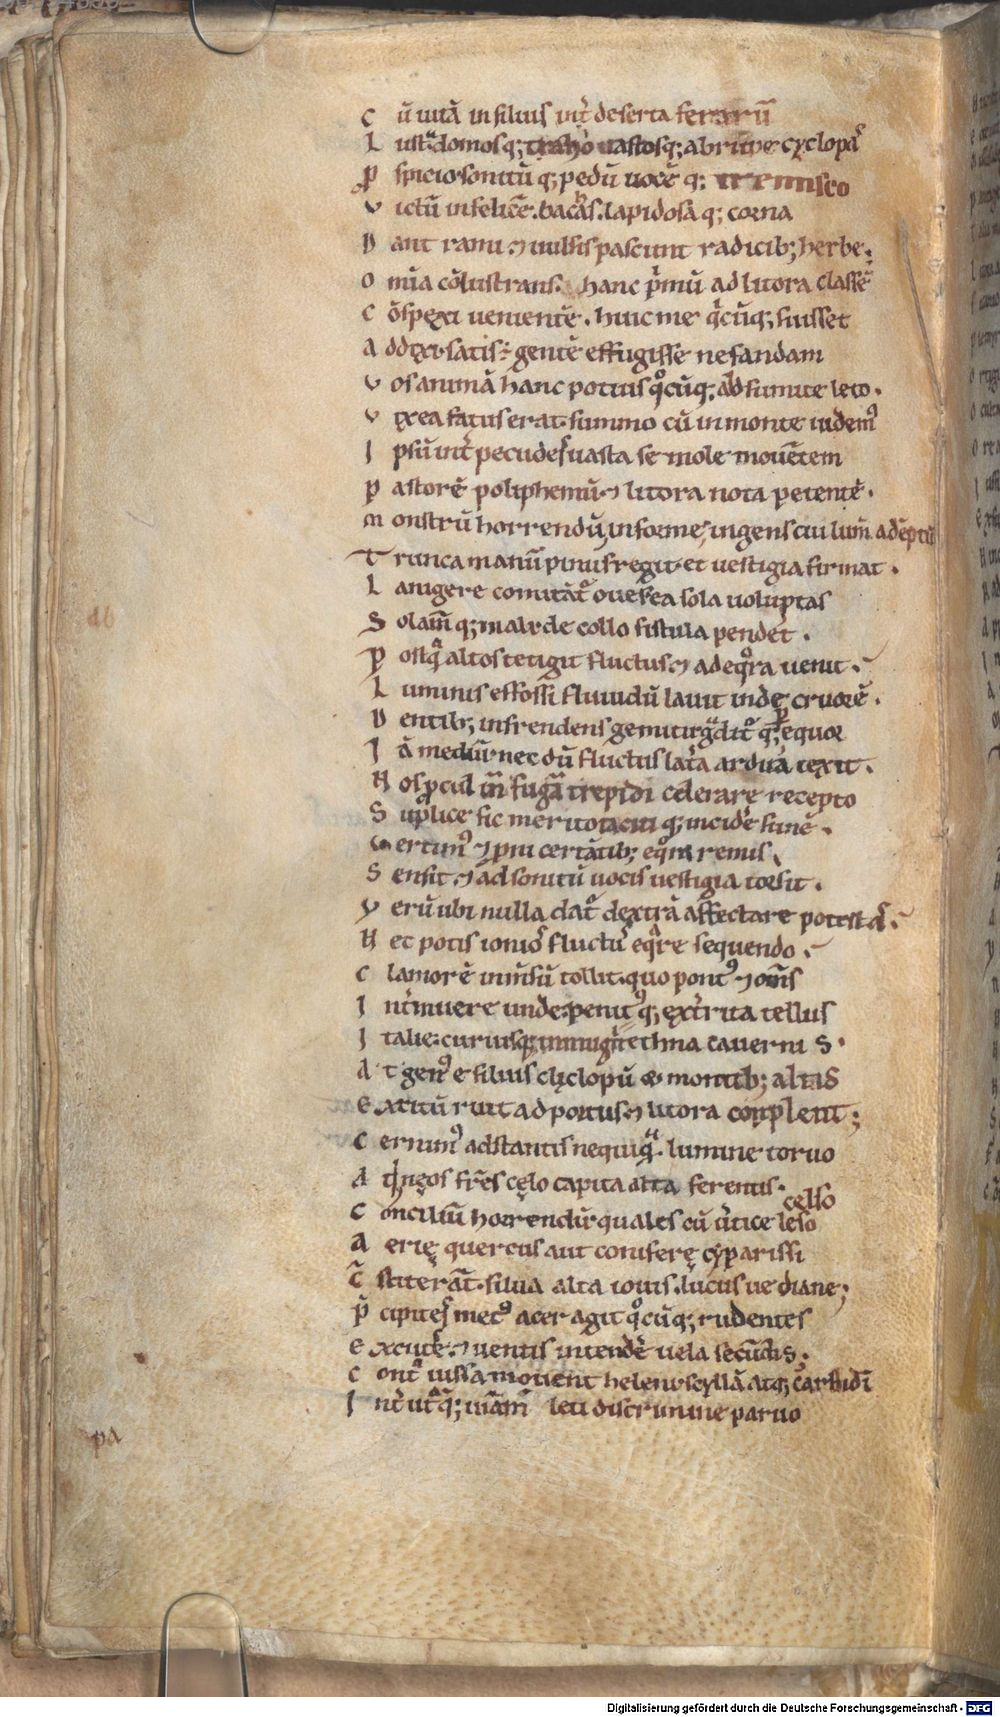 C ū uitā in siluis int̓ deserta ferarū
L ustᵃ domosq; traho uastosq; ab rupe cyclopaˢ
P spicio sonitū q; pedū uocē q; tremisco
V ictū infelicē. bacas. lapidosa q; corna
D ant rami ⁊ uulsis pascunt radicib; herbe.
O mīa cōlustrans. hanc pⁱmū ad litora classē
C ōspexi uenientē. huic me qͥcūq; fuisset
A ddixi satis ē gentē effugisse nefandam
V os animā hanc potius qᵒcūq; absumite leto.
V ix ea fatus erat. summo cū in monte uidemꝰ
I psū int̓ pecudes uasta se mole mouētem
P astorē poliphemū ⁊ litora nota petentē.
M onstrū horrendū, informe, ingens cui lum̄ adēptū
T runca manū pinus regit. et uestigia firmat.
L anigere comitātᷣ oues. ea sola uoluptas
S olam̄ q; mali de collo fistula pendet.
P ostqᵃ altos tetigit fluctus ⁊ ad eqᵒra uenit.
L uminis effossi fluuidū lauit inde cruorē.
D entib; infrendens gemitu. gᵃditᷣ q; p equor
I ā mediū. nec dū fluctus lat̓a ardua texit.
N os pcul in̄ fugā trepidi celerare recepto
S upplice sic merito taciti q; incidē funē.
V ertimꝰ ⁊ pni certātib; eqᵒra remis
S ensit ⁊ ad sonitū uocis uestigia torsit.
V erū ubi nulla datᷣ dextrā affectare potestaˢ.
N ec potis ionioˢ fluctuˢ eqᵃre sequendo.
C lamorē inm̄sū tollit. quo pontꝰ ⁊ om̄s
I nt̓muere unde. penitꝰ q; ext̓rita tellus
I talie. curuisq; immugiit ethna cauernis.
A t genꝰ e siluis cyclopū & montib; altis
E xcitū ruit ad portus ⁊ litora conplent;
C ernimꝰ adstantis nequiqᵃ. lumine toruo
A thneos fr̄es celo capita alta ferentis.
celso
C oncilium horrendū. quales cū ūtice leso
A erię quercus aut coniferę cyparissi
C̄ stiterāt. silua alta iouis. lucus ue diane;
P̄ cipites metꝰ acer agit qᵒcūq; rudentes
E xcutē. ⁊ uentis intendē uela secūdis;
C ontᵃ iussa mouent heleni. scyllā atq; carbidī
I nt̓ utᵃq; uiam̄ leti discrimine paruo
pa
Digitalisierung gefördert durch die Deutsche Forschungsgemeinschaft - DFG